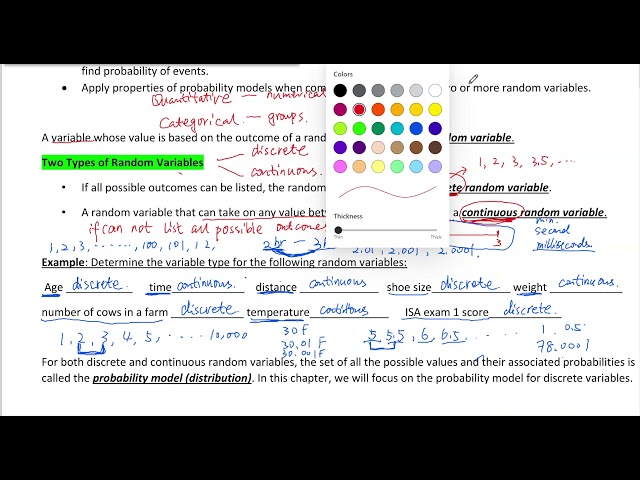 find probability of events.
• Apply properties of probability models when con Colors wo or more random variables.
Quantitative — numerical
Categorical — groups.
A variable whose value is based on the outcome of a rand dom variable.
discrete
Two Types of Random Variables
continuous.
1, 2, 3, 3.5, ....
• If all possible outcomes can be listed, the random ete random variable.
• A random variable that can take on any value betw a continuous random variable.
Thickness
Thin Thick
if can not list all possible outcomes
min.
second
milliseconds
1, 2, 3, ......, 100, 101, 1.2,
2hr — 2.01, 2.001, 2.0001, 3
Example: Determine the variable type for the following random variables:
Age discrete. time continuous. distance continuous shoe size discrete weight continuous.
number of cows in a farm discrete temperature continuous ISA exam 1 score discrete.
1, 2, 3, 4, 5, .... 10,000
30 F
30.01 F
30.001 F
5, 5.5, 6, 6.5 ....
1. 0.5
78.0001
For both discrete and continuous random variables, the set of all the possible values and their associated probabilities is
called the probability model (distribution). In this chapter, we will focus on the probability model for discrete variables.